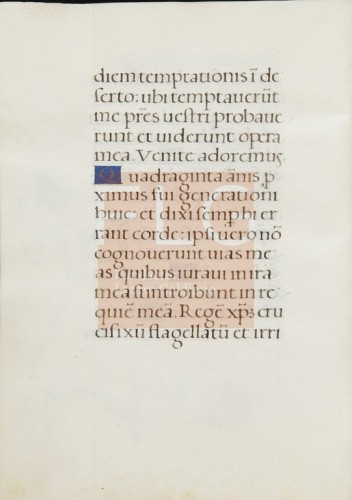 diem temptationis ī de
serto: ubi temptauerūt
me p̄res uestri probaue
runt et uiderunt opera
mea. Venite adoremus
Quadraginta ānis, p
ximus fui generationi
huic et dixi semp̱ hi er
rant corde: ipsi uero nō
cognouerunt uias me
as quibus iuraui in ira
mea si introibunt in re
quiē meā. Regē xp̄s cru
cifixū flagellatū et irri
FLG